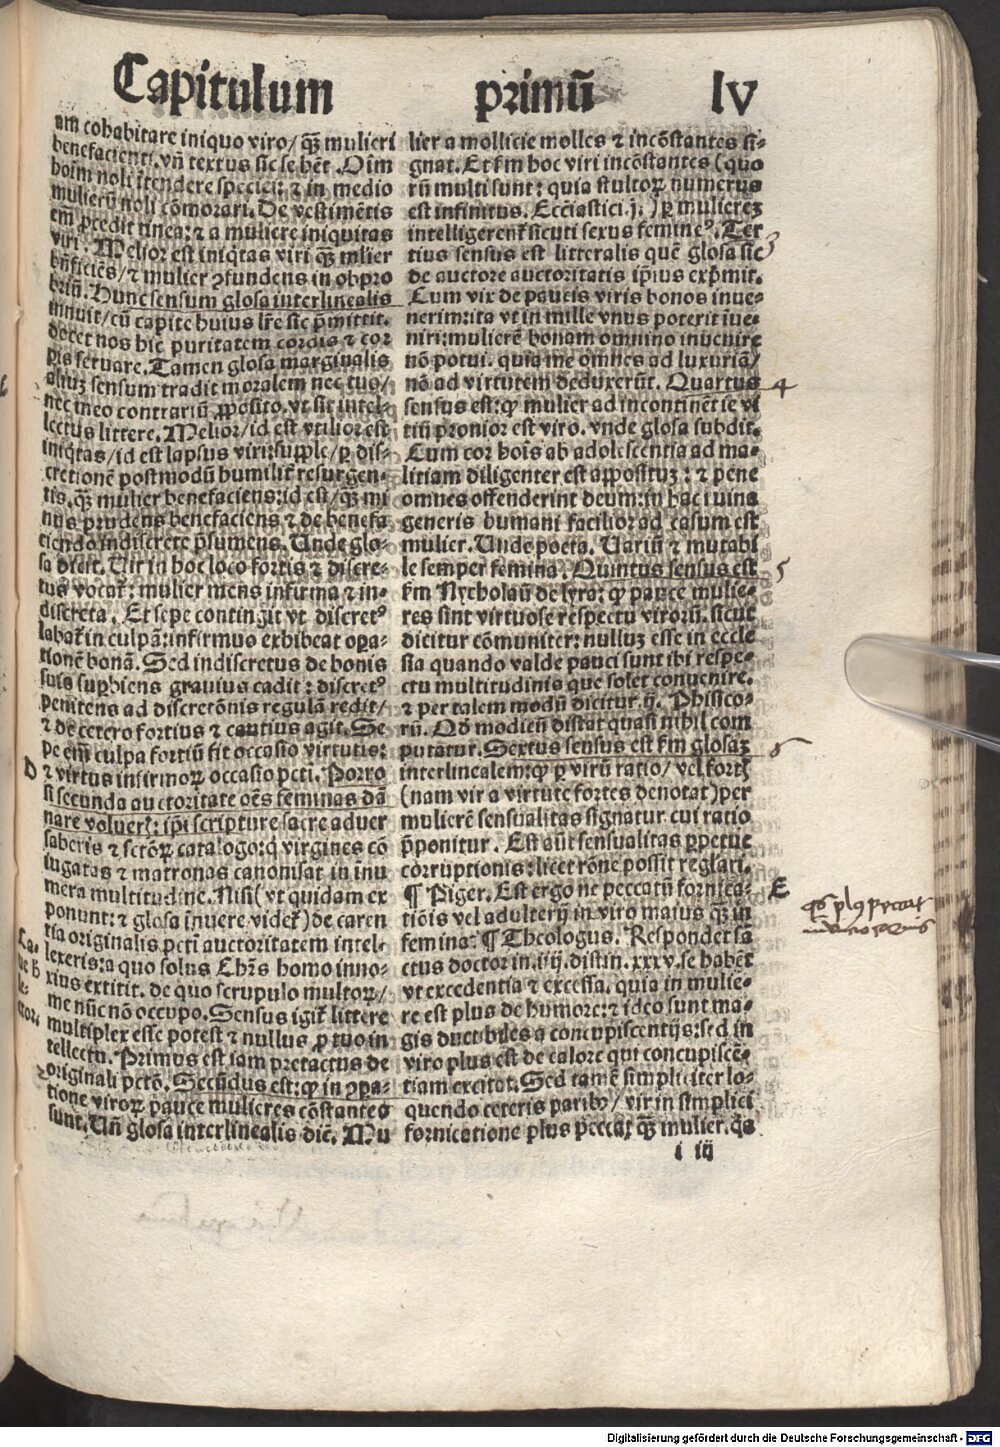 Capitulum primū lv
am cohabitare iniquo viro/ qȝ mulieri
benefacienti. vñ textus sic se hēt. Oīm
hoīm noli ītendere speciei: ⁊ in medio
mulierū noli cōmorari. De vestimētis
em̄ p̄cedit tinea: ⁊ a muliere iniquitas
viri. Melior est iniq̇tas viri qȝ mlier
bn̄ficiēs/ ⁊ mulier ꝓfundens in obpro
briū. Hunc sensum glosa interlinealis
innuit/ cū capite huius lr̄e sic p̄mittit.
docet nos hic puritatem cordis ⁊ cor
ꝑis seruare. Tamen glosa marginalis
aliuȝ sensum tradit moralem nec tuo/
nec meo contrariū ꝓposito. vt sit intel-
lectus littere. Melior/ id est vtilior est
iniq̇tas/ id est lapsus viri: supple/ ꝑ dis-
cretionē postmodū humilit̄ resurgen-
tis. qȝ mulier benefaciens: id est/ qȝ mi
nus prudens benefaciens ⁊ de benefa
ciendo indiscrete p̄sumens. Unde glo-
sa dicit. Uir in hoc loco fortis ⁊ discre-
tus vocat̄: mulier mens infirma ⁊ in-
discreta. Et sepe contingit vt discretꝰ
labat̄ in culpā: infirmus exhibeat oꝑa-
tionē bonā. Sed indiscretus de bonis
suis suꝑbiens grauius cadit: discretꝰ
penitens ad discretōnis regulā redit/
⁊ de cetero fortius ⁊ cautius agit. Se
pe em̄ culpa fortiū fit occasio virtutis:
D
⁊ virtus infirmoꝝ occasio pcti. Porro
si secunda auctoritate oēs feminas dā
nare volueris: ip̄i scripture sacre aduer
saberis ⁊ sctōꝝ catalogo: q̇ virgines cō
iugatas ⁊ matronas canonisat in inu
mera multitudine. Nisi (vt quidam ex
ponunt: ⁊ glosa īnuere videt̄) de caren
tia originalis pcti auctoritatem intel-
lexeris: a quo solus Chr̄s homo inno-
xius extitit. de quo scrupulo multoꝝ/
me nūc nō occupo. Sensus igit̄ littere
multiplex esse potest ⁊ nullus ꝓ tuo in
tellectu. Primus est iam pretactus de
originali pctō. Secūdus est: ꝙ in ꝯꝑa-
tione viroꝝ pauce mulieres cōstantes
sunt. Uñ glosa interlinealis dic̄. Mu
lier a mollicie molles ⁊ incōstantes si-
gnat. Et fm hoc viri incōstantes (quo
rū multi sunt: quia stultoꝝ numerus
est infinitus. Ecc̄iastici .j.) ꝑ mulierez
intelligerent̄ sicuti sexus femineꝰ. Ter
3
tius sensus est litteralis quē glosa sic
de auctore auctoritatis ip̄ius exp̄mit.
Cum vix de paucis viris bonos inue-
nerim: ita vt in mille vnus poterit īue-
niri: mulierē bonam omnino inuenire
nō potui. quia me omnes ad luxuriā/
nō ad virtutem deduxerūt. Quartus
4
sensus est: ꝙ mulier ad incontinētie vi
tiū pronior est viro. vnde glosa subdit.
Cum cor hoīs ab adolescentia ad ma-
litiam diligenter est appositnȝ: ⁊ pene
omnes offenderint deum: in hac ruina
generis humani facilior ad casum est
mulier. Unde poeta. Uariū ⁊ mutabi
le semper femina. Quintus sensus est
5
fm Nycholaū de lyra: ꝙ pauce mulie-
res sint virtuose respectu virorū. sicut
dicitur cōmuniter: nulluȝ esse in eccle
sia quando valde pauci sunt ibi respe-
ctu multitudinis que solet conuenire.
⁊ per talem modū dicitur .ij. Phisico-
rū. Qd modicū distat quasi nihil com
putatur. Sextus sensus est fm glosaȝ
6
interlinealem: ꝙ ꝑ virū ratio/ vel fortȝ
(nam vir a virtute fortes denotat) per
mulierē sensualitas signatur. cui ratio
p̄ponitur. Est aūt sensualitas ꝑpetue
corruptionis: licet rōne possit reglari.
¶ Piger. Est ergo ne peccatū fornica-
E
tiōis vel adulterij in viro maius qȝ in
femina: ¶ Theologus. Respondet sā
ctus doctor in .iiij. distin. xxxv. se habēt
vt excedentia ⁊ excessa. quia in mulie-
re est plus de humore: ⁊ ideo sunt ma-
gis ducibiles a concupiscentijs: sed in
viro plus est de calore qui concupiscē-
tiam excitat. Sed tamē simpliciter lo-
quendo ceteris paribꝰ/ vir in simplici
fornicatione plus peccat qȝ mulier. q̇a
i iij
Digitalisierung gefördert durch die Deutsche Forschungsgemeinschaft - DFG